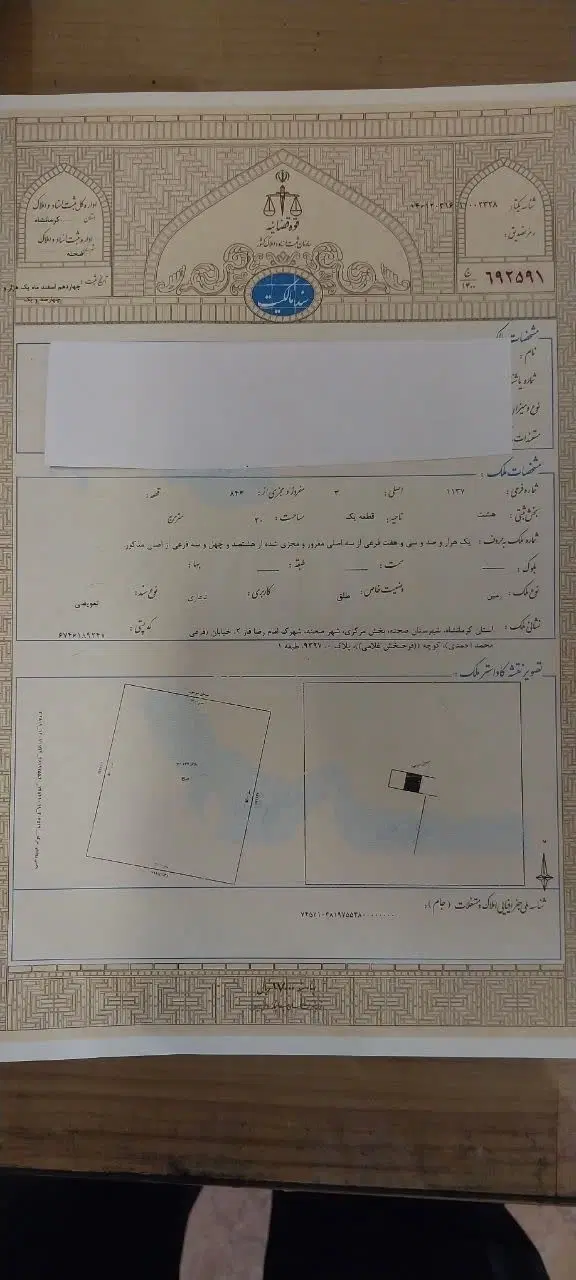 قوه قضاییه
سازمان ثبت اسناد و املاک کشور
سند مالکیت
اداره کل ثبت اسناد و املاک
استان کرمانشاه
اداره ثبت اسناد و املاک
صحنه
تاریخ ثبت: چهاردهم اسفند ماه یک هزار و
چهارصد و یک
شناسه یکتا:
رمز تصدیق:
۶۹۲۵۹۱
۱۴۰۰
مشخصات
نام :
مشخصات ملک :
شماره فرعی: ۱۱۳۷ اصلی: ۳ مفروز و مجزی از: ۸۴۳ قطعه:
بخش ثبتی: هشت ناحیه: قطعه یک مساحت: ۲۰ مترمربع
شماره ملک به حروف: یک هزار و صد و سی و هفت فرعی از سه اصلی مفروز و مجزی شده از هشتصد و چهل و سه فرعی از اصلی مذکور
بلوک: سمت: طبقه: بها:
نوع ملک: زمین وضعیت خاص: طلق کاربری: تجاری نوع سند: تعویضی
نشانی ملک: استان کرمانشاه، شهرستان صحنه، بخش مرکزی، شهر صحنه، شهرک امام رضا فاز ۲، خیابان ((فرعی کدپستی: ۶۷۴۶۱۸۹۳۴۷
محمد احمدی))، کوچه ((فرحبخش غلامی))، پلاک ۹۳۹۷.۰۰، طبقه ۱
تصویر نقشه کاداستر ملک :
شناسه ملی جغرافیایی املاک و مستغلات (جام):